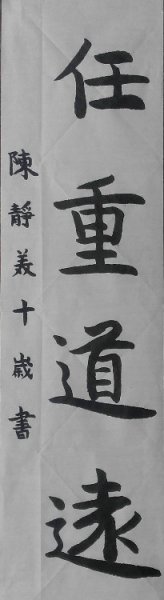 任重道遠
陳靜義十歲書